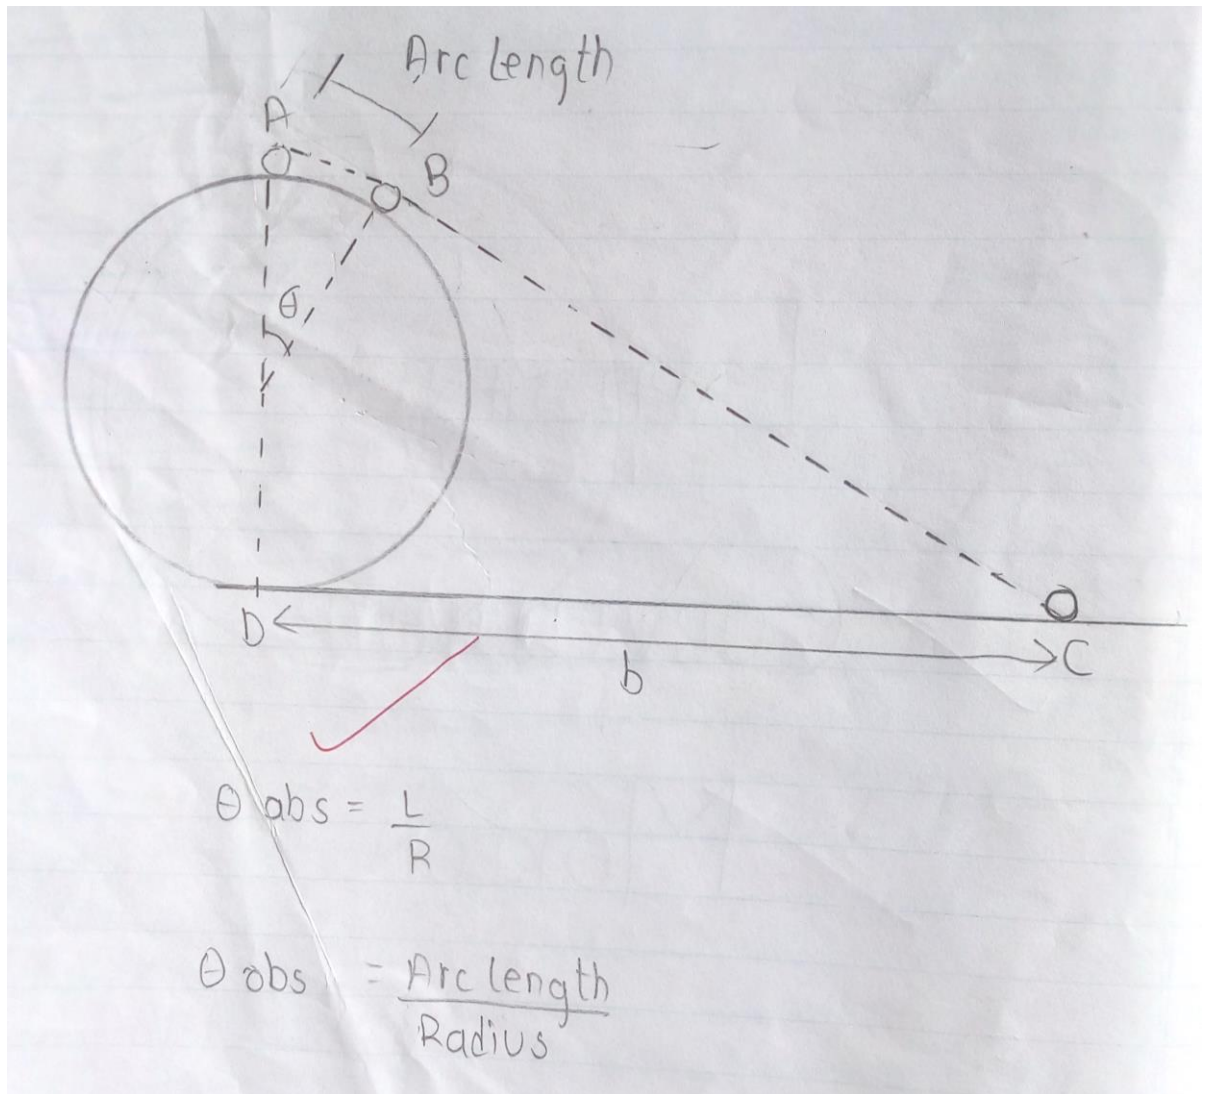 Arc length
A
B
θ
D
C
b
θ abs = L
R
θ obs = Arc length
Radius